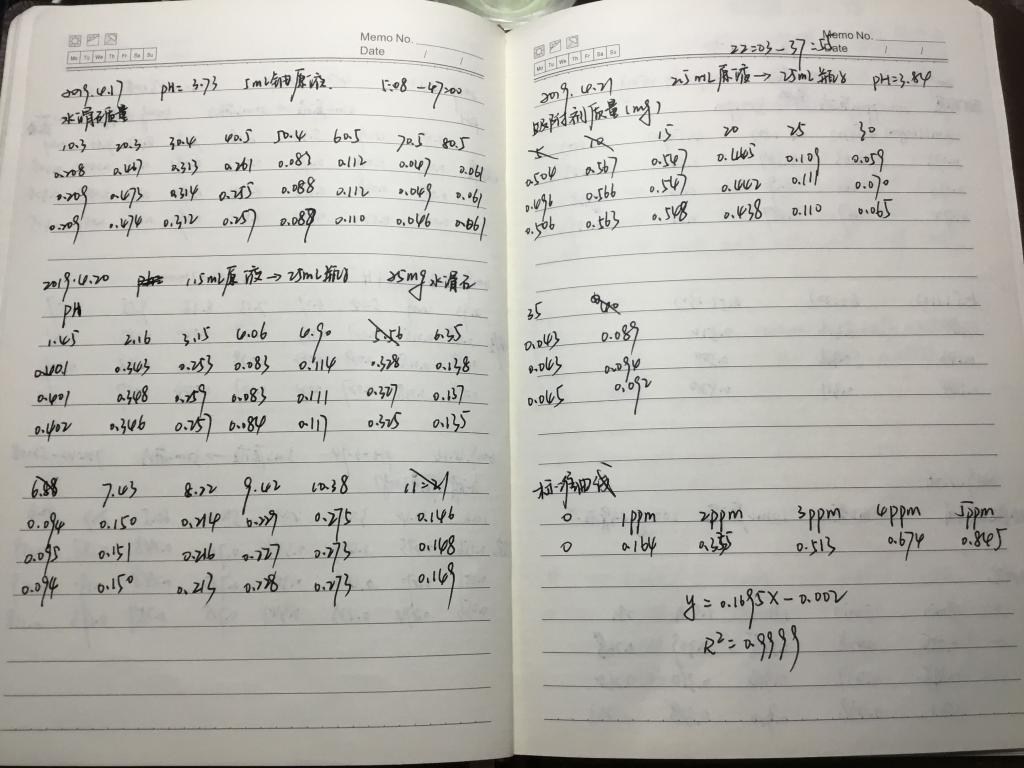 Memo No.
Mo Tu We Th Fr Sa Su
Date / /
2019.4.17 pH=3.73 5mL铀原液 15:08-47:00
水滑石质量
10.3 20.3 30.4 40.5 50.4 60.5 70.5 80.5
0.208 0.467 0.313 0.261 0.083 0.112 0.047 0.061
0.209 0.473 0.314 0.255 0.088 0.112 0.049 0.061
0.209 0.474 0.312 0.257 0.089 0.110 0.046 0.061
2019.4.20 1.5mL原液→25mL瓶 25mg水滑石
pH
1.45 2.16 3.15 4.06 4.90 5.56 6.35
0.401 0.343 0.253 0.083 0.114 0.328 0.138
0.401 0.348 0.259 0.083 0.111 0.327 0.137
0.402 0.346 0.257 0.084 0.117 0.325 0.135
6.88 7.43 8.22 9.42 10.38 11.21
0.094 0.150 0.214 0.229 0.275 0.146
0.095 0.151 0.216 0.227 0.273 0.148
0.094 0.150 0.213 0.228 0.273 0.149
22=03-37=55
Memo No.
Mo Tu We Th Fr Sa Su
Date / /
2019.4.21 2.5mL原液→25mL瓶 pH=3.84
吸附剂质量(mg)
5 10 15 20 25 30
0.504 0.567 0.547 0.445 0.109 0.059
0.496 0.566 0.547 0.442 0.111 0.070
0.506 0.563 0.548 0.438 0.110 0.065
35 40
0.043 0.089
0.043 0.094
0.045 0.092
标准曲线
0 1ppm 2ppm 3ppm 4ppm 5ppm
0 0.164 0.335 0.513 0.674 0.845
y=0.1695x-0.002
R²=0.9999